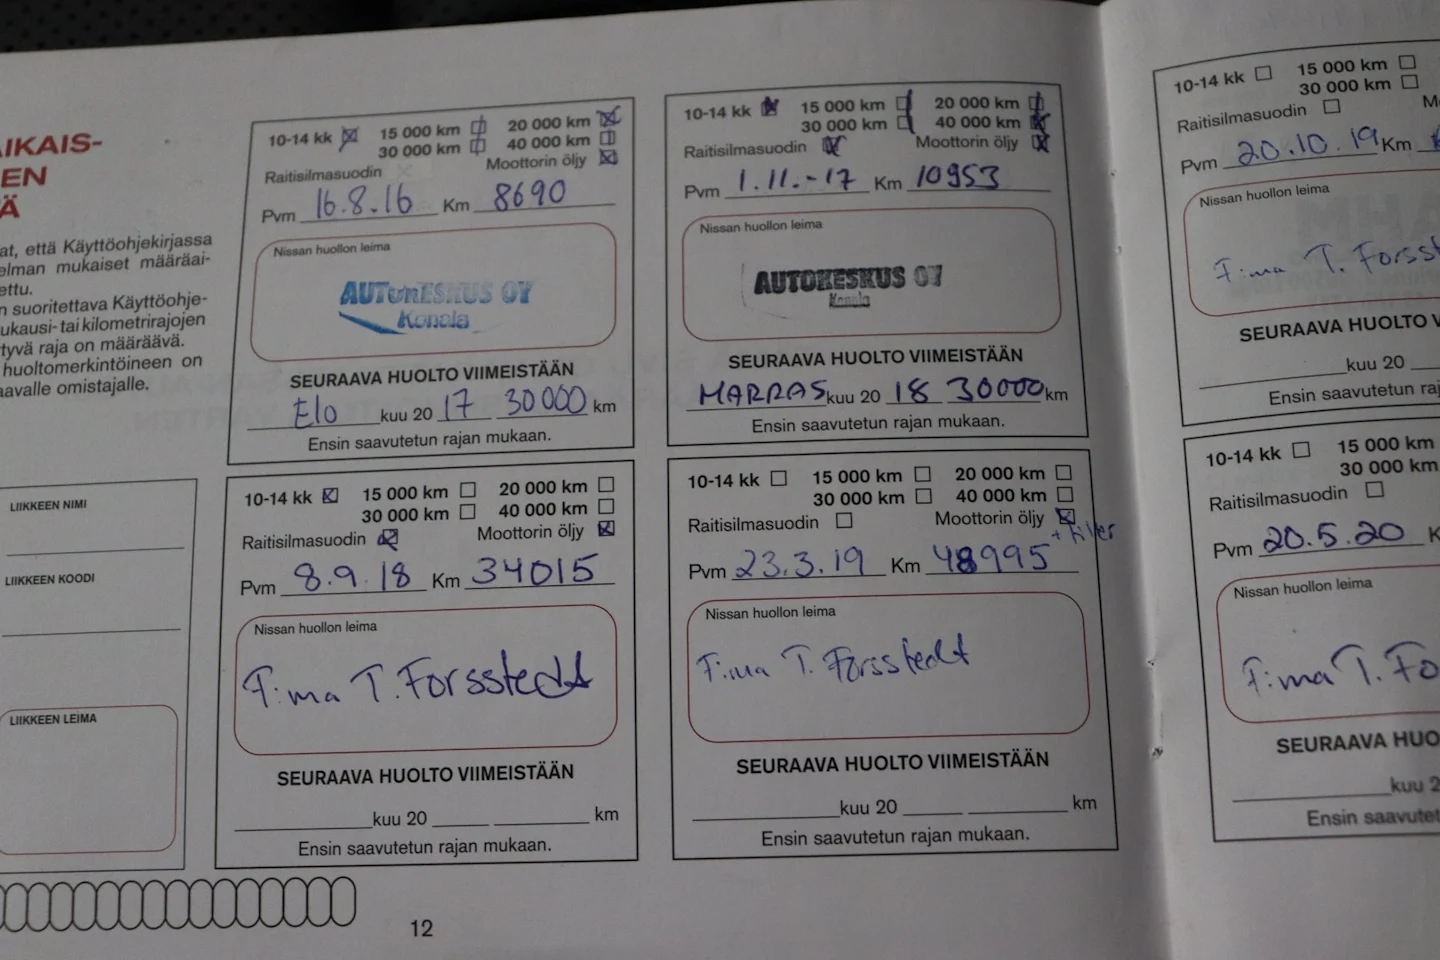 AIKAIS-
EN
Ä
at, että Käyttöohjekirjassa
elman mukaiset määräai-
ettu.
n suoritettava Käyttöohje-
ukausi- tai kilometrirajojen
tyvä raja on määräävä.
huoltomerkintöineen on
aavalle omistajalle.
LIIKKEEN NIMI
LIIKKEEN KOODI
LIIKKEEN LEIMA
10-14 kk 15 000 km 20 000 km
30 000 km 40 000 km
Raitisilmasuodin Moottorin öljy
Pvm 16.8.16 Km 8690
Nissan huollon leima
AUTOKESKUS OY
Konala
SEURAAVA HUOLTO VIIMEISTÄÄN
Elo kuu 20 17 30000 km
Ensin saavutetun rajan mukaan.
10-14 kk 15 000 km 20 000 km
30 000 km 40 000 km
Raitisilmasuodin Moottorin öljy
Pvm 1.11.-17 Km 10953
Nissan huollon leima
AUTOKESKUS OY
Konala
SEURAAVA HUOLTO VIIMEISTÄÄN
MARRAS kuu 20 18 30000 km
Ensin saavutetun rajan mukaan.
10-14 kk 15 000 km 20 000 km
30 000 km 40 000 km
Raitisilmasuodin Moottorin öljy
Pvm 8.9.18 Km 34015
Nissan huollon leima
F:ma T. Forsstedt
SEURAAVA HUOLTO VIIMEISTÄÄN
kuu 20 km
Ensin saavutetun rajan mukaan.
10-14 kk 15 000 km 20 000 km
30 000 km 40 000 km
Raitisilmasuodin Moottorin öljy
Pvm 23.3.19 Km 48995
Nissan huollon leima
F:ma T. Forsstedt
SEURAAVA HUOLTO VIIMEISTÄÄN
kuu 20 km
Ensin saavutetun rajan mukaan.
12
10-14 kk 15 000 km
30 000 km
Raitisilmasuodin M
Pvm 20.10.19 Km
Nissan huollon leima
F:ma T. Forsst
SEURAAVA HUOLTO V
kuu 20
Ensin saavutetun raj
10-14 kk 15 000 km
30 000 km
Raitisilmasuodin
Pvm 20.5.20 K
Nissan huollon leima
F:ma T. Fo
SEURAAVA HUO
kuu 2
Ensin saavutet